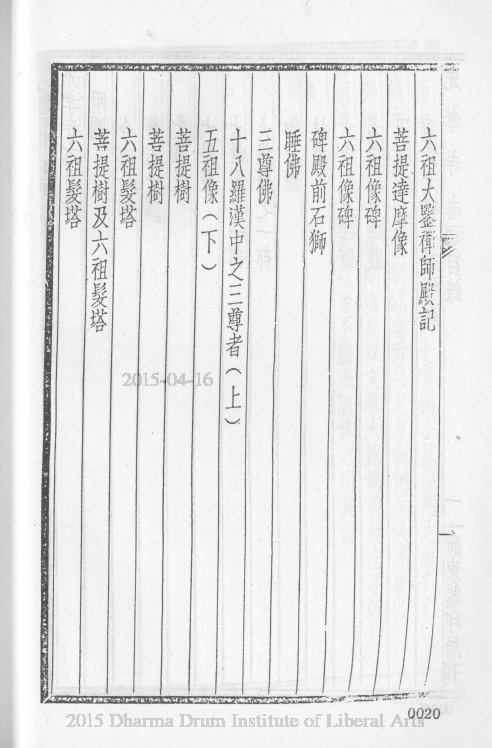 六祖大鑒禪師殿記
菩提達摩像
六祖像碑
六祖像碑
碑殿前石獅
睡佛
三尊佛
十八羅漢中之三尊者(上)
五祖像(下)
菩提樹
菩提樹
六祖髮塔
菩提樹及六祖髮塔
六祖髮塔
2015-04-16
0020
2015 Dharma Drum Institute of Liberal Arts